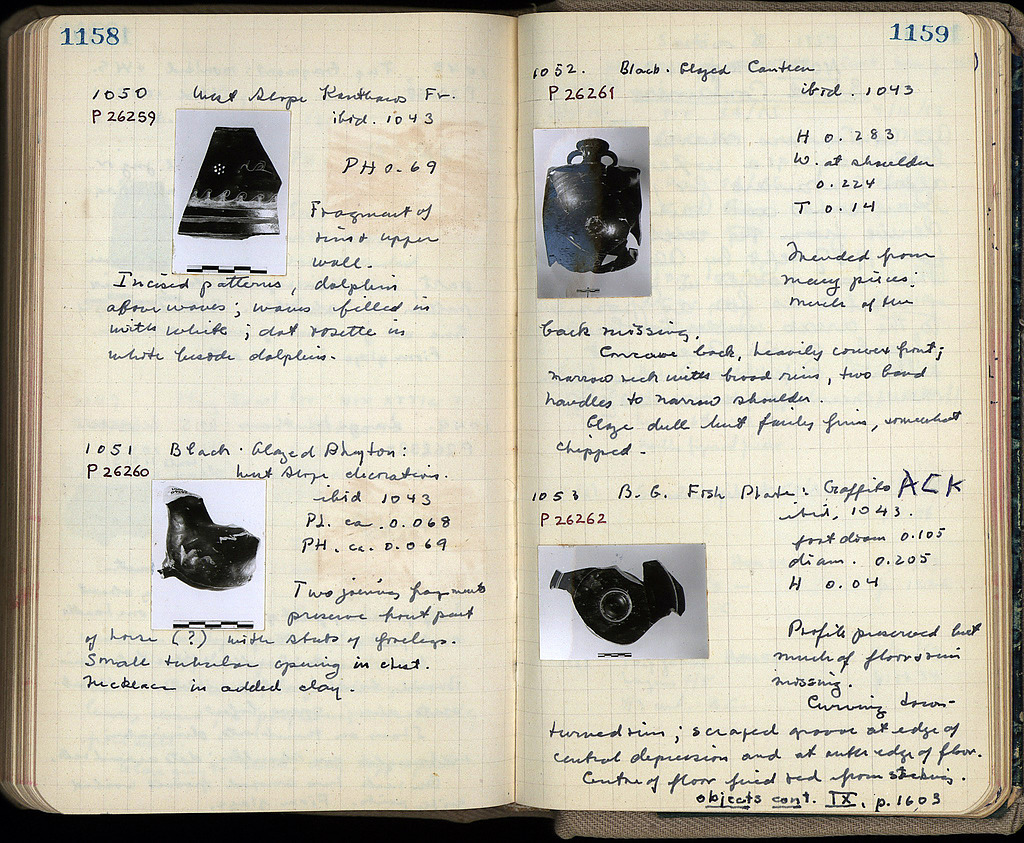 1158
1050 West Slope Kantharos Fr.
P 26259
ibid. 1043
PH 0.69
Fragment of
rim & upper
wall.
Incised patterns, dolphin
above waves; waves filled in
with white; dot rosette in
white beside dolphin.
1051 Black-Glazed Rhyton:
P 26260
West Slope decoration.
ibid 1043
PL. ca. 0.068
PH. ca. 0.069
Two joining fragments
preserve front part
of horse (?) with stubs of forelegs.
Small tubular opening in chest.
Necklace in added clay.
1159
1052. Black-Glazed Canteen
P 26261
ibid. 1043
H 0.283
W. at shoulder
0.224
T 0.14
Mended from
many pieces;
much of the
back missing.
Concave back, heavily convex front;
narrow neck with broad rim, two band
handles to narrow shoulder.
Glaze dull but fairly firm, somewhat
chipped.
1053 B.G. Fish Plate: Graffito ACK
P 26262
ibid, 1043.
foot diam 0.105
diam. 0.205
H 0.04
Profile preserved but
much of floor & rim
missing.
Curving down-
turned rim; scraped groove at edge of
central depression and at outer edge of floor.
Centre of floor fired red from stacking.
objects cont. IX, p. 1603